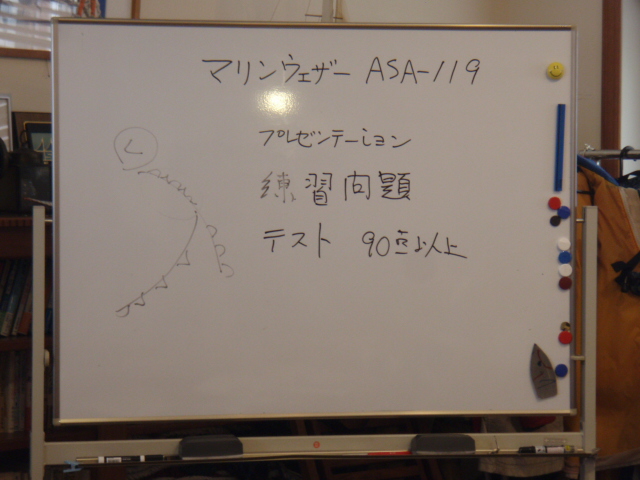 マリンウェザー ASA-119
プレゼンテーション
練習問題
テスト 90点以上
L